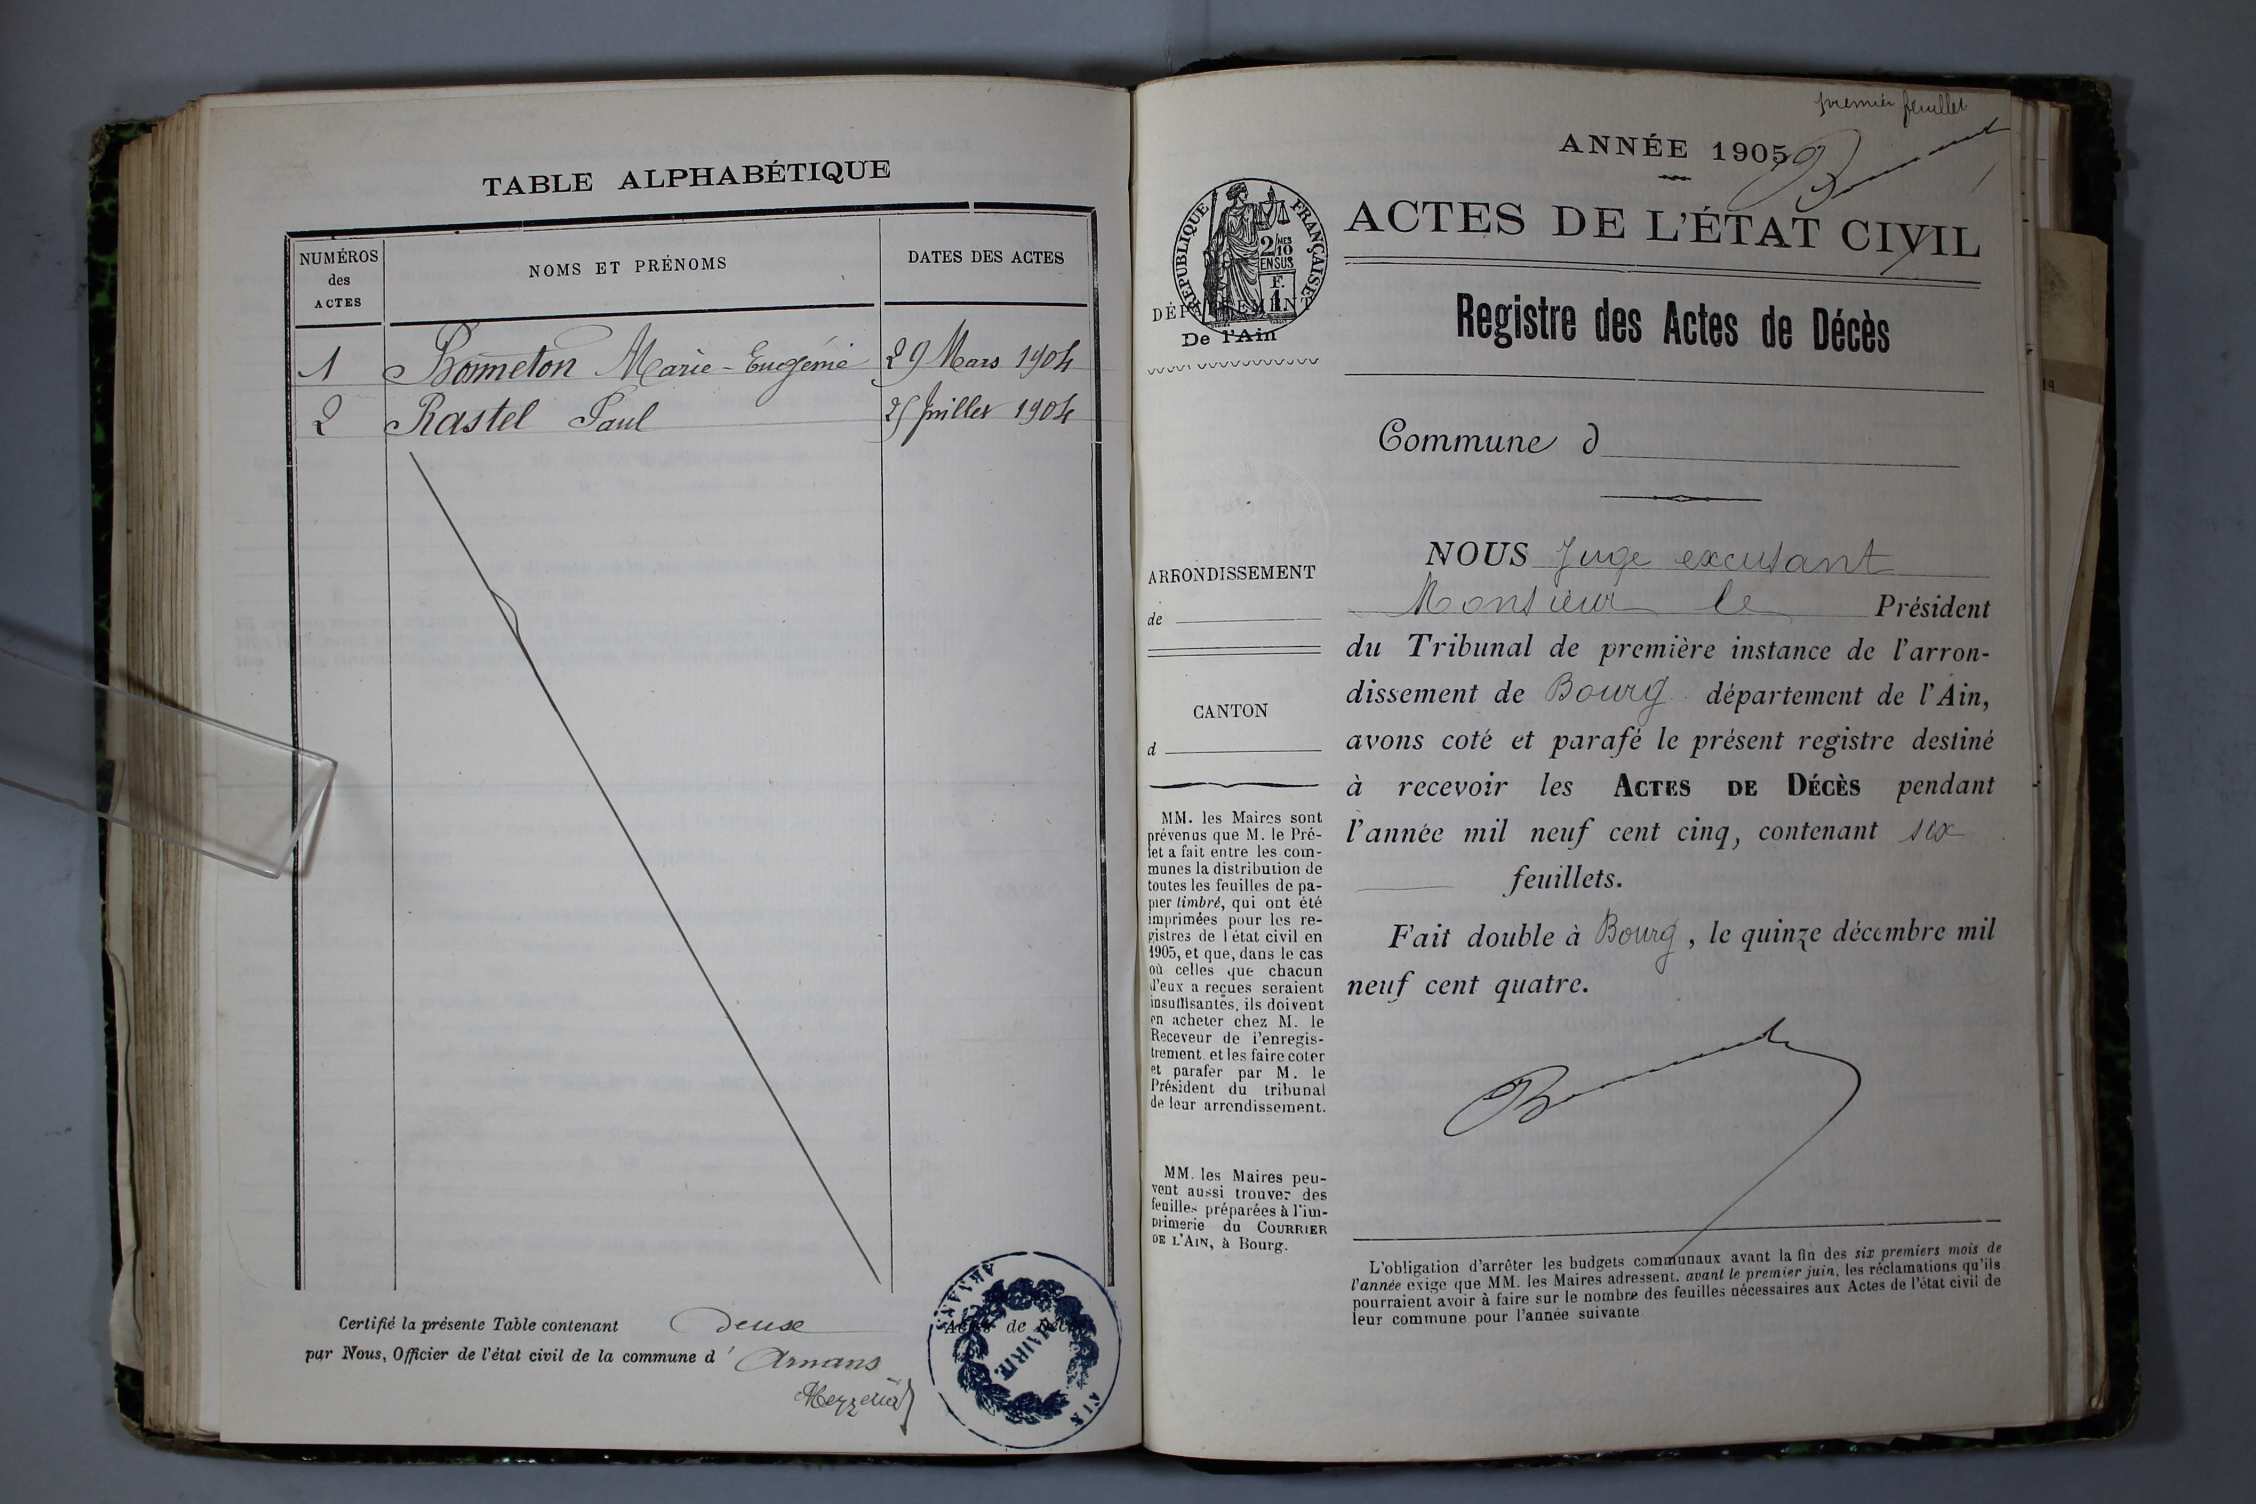 TABLE ALPHABÉTIQUE
NUMÉROS
des
ACTES
NOMS ET PRÉNOMS
DATES DES ACTES
1 Bonneton Marie-Eugénie 29 Mars 1904
2 Rastel Paul 25 Juillet 1904
Certifié la présente Table contenant deux Actes de Décès
par Nous, Officier de l'état civil de la commune d' Arnans
MAIRIE
ARNANS
AIN
premier feuillet
ANNÉE 1905
ACTES DE L'ÉTAT CIVIL
RÉPUBLIQUE FRANÇAISE
2/10 MES
EN SUS
1 F.
DÉPARTEMENT
De l'Ain
Registre des Actes de Décès
Commune d
ARRONDISSEMENT
de
CANTON
d
MM. les Maires sont
prévenus que M. le Pré-
fet a fait entre les com-
munes la distribution de
toutes les feuilles de pa-
pier timbré, qui ont été
imprimées pour les re-
gistres de l'état civil en
1905, et que, dans le cas
où celles que chacun
d'eux a reçues seraient
insuffisantes, ils doivent
en acheter chez M. le
Receveur de l'enregis-
trement, et les faire coter
et parafer par M. le
Président du tribunal
de leur arrondissement.
MM. les Maires peu-
vent aussi trouver des
feuilles préparées à l'im-
primerie du COURRIER
DE L'AIN, à Bourg.
NOUS Juge excusant
Monsieur le Président
du Tribunal de première instance de l'arron-
dissement de Bourg département de l'Ain,
avons coté et parafé le présent registre destiné
à recevoir les ACTES DE DÉCÈS pendant
l'année mil neuf cent cinq, contenant six
feuillets.
Fait double à Bourg, le quinze décembre mil
neuf cent quatre.
L'obligation d'arrêter les budgets communaux avant la fin des six premiers mois de
l'année exige que MM. les Maires adressent, avant le premier juin, les réclamations qu'ils
pourraient avoir à faire sur le nombre des feuilles nécessaires aux Actes de l'état civil de
leur commune pour l'année suivante